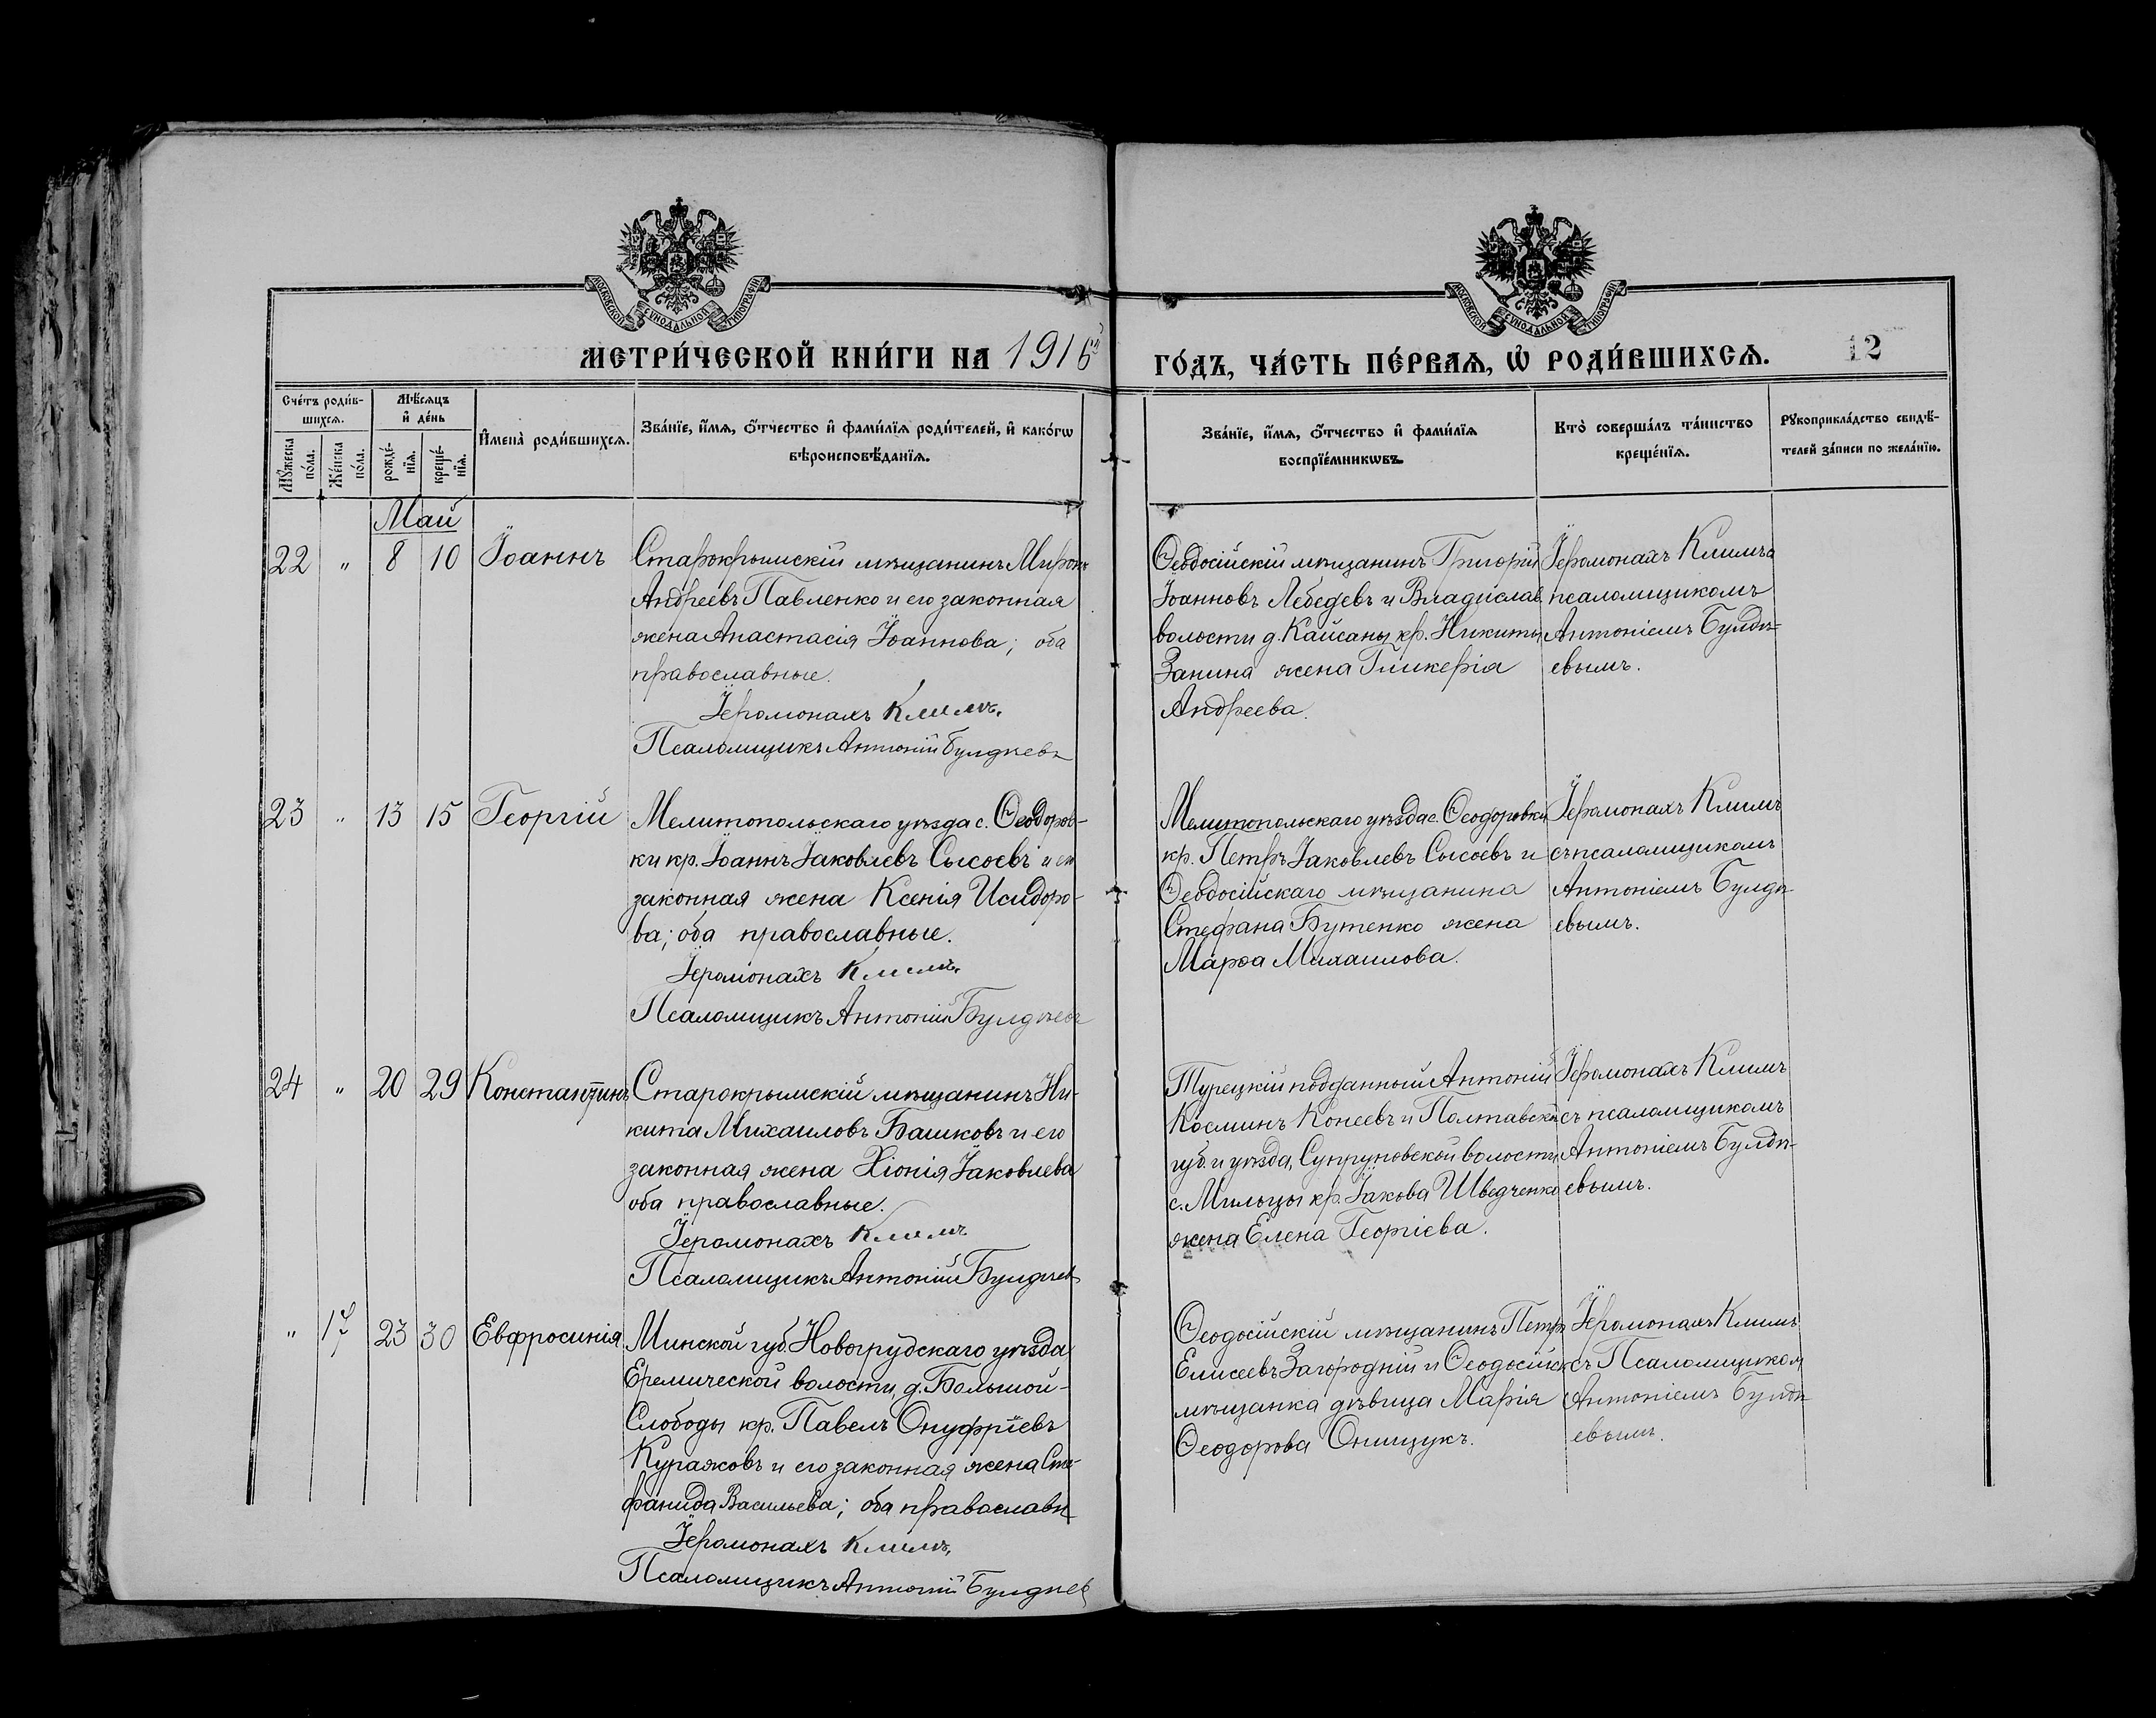 МОСКОВСКОЙ СУНОДАЛЬНОЙ ТИПОГРАФІИ
МОСКОВСКОЙ СУНОДАЛЬНОЙ ТИПОГРАФІИ
МЕТРИ́ЧЕСКОЙ КНИ́ГИ НА 1916й ГО́ДЪ, ЧА́СТЬ ПЕ́РВАѦ, Ѡ҆ РОДИ́ВШИХСѦ.
12
Сче́тъ роди́в-
шихсѧ.
Мꙋ́жеска по́ла.
Же́нска по́ла.
Мѣ́сѧцъ
и҆ де́нь
рожде́-нїѧ.
креще́-нїѧ.
И҆мена̀ роди́вшихсѧ.
Зва́нїе, и҆́мѧ, ѻ҆́тчество и҆ фами́лїѧ роди́телей, и҆ како́гѡ
вѣроисповѣ́данїѧ.
Зва́нїе, и҆́мѧ, ѻ҆́тчество и҆ фами́лїѧ
воспрїе́мникѡвъ.
Кто̀ соверша́лъ та́инство
креще́нїѧ.
Рꙋкоприкла́дство свидѣ́-
телей за́писи по жела́нїю.
Май
22 " 8 10 Іоаннъ
Старокрымскій мѣщанинъ Миронъ
Андреевъ Павленко и его законная
жена Анастасія Іоаннова; оба
православные.
Іеромонахъ Климъ.
Псаломщикъ Антоній Булдѣевъ
Ѳеодосійскій мѣщанинъ Григорій
Іоанновъ Лебедевъ и Владислав
волости д. Кайсаны кр. Никиты
Занина жена Гликерія
Андреева.
Іеромонахъ Климъ с
псаломщикомъ
Антоніемъ Булдѣ-
евымъ.
23 " 13 15 Георгій
Мелитопольскаго уѣзда с. Ѳеодоров-
ки кр. Іоаннъ Іаковлевъ Сысоевъ и его
законная жена Ксенія Исидоро-
ва; оба православные.
Іеромонахъ Климъ.
Псаломщикъ Антоній Булдѣевъ
Мелитопольскаго уѣзда с. Ѳеодоровки
кр. Петръ Іаковлевъ Сысоевъ и
Ѳеодосійскаго мѣщанина
Стефана Бутенко жена
Марѳа Михаилова.
Іеромонахъ Климъ
съ псаломщикомъ
Антоніемъ Булдѣ-
евымъ.
24 " 20 29 Константинъ
Старокрымскій мѣщанинъ Ни-
кита Михаиловъ Башковъ и его
законная жена Хіонія Іаковлева
оба православные.
Іеромонахъ Климъ
Псаломщикъ Антоній Булдѣев
Турецкій подданный Антоній
Косминъ Конеевъ и Полтавской
губ. и уѣзда, Супруновской волости
с. Мильцы кр. Іакова Шведченко
жена Елена Георгіева.
Іеромонахъ Климъ
съ псаломщикомъ
Антоніемъ Булдѣ-
евымъ.
" 17 23 30 Евфросинія
Минской губ. Новогрудскаго уѣзда
Еремической волости, д. Большой-
Слободы кр. Павелъ Онуфріевъ
Куражовъ и его законная жена Сте-
фанида Васильева; оба православн
Іеромонахъ Климъ.
Псаломщикъ Антоній Булдѣев
Ѳеодосійскій мѣщанинъ Петръ
Елисеевъ Загородній и Ѳеодосійск
мѣщанка дѣвица Марія
Ѳеодорова Онищукъ.
Іеромонахъ Климъ
съ Псаломщиком
Антоніемъ Булдѣ-
евымъ.